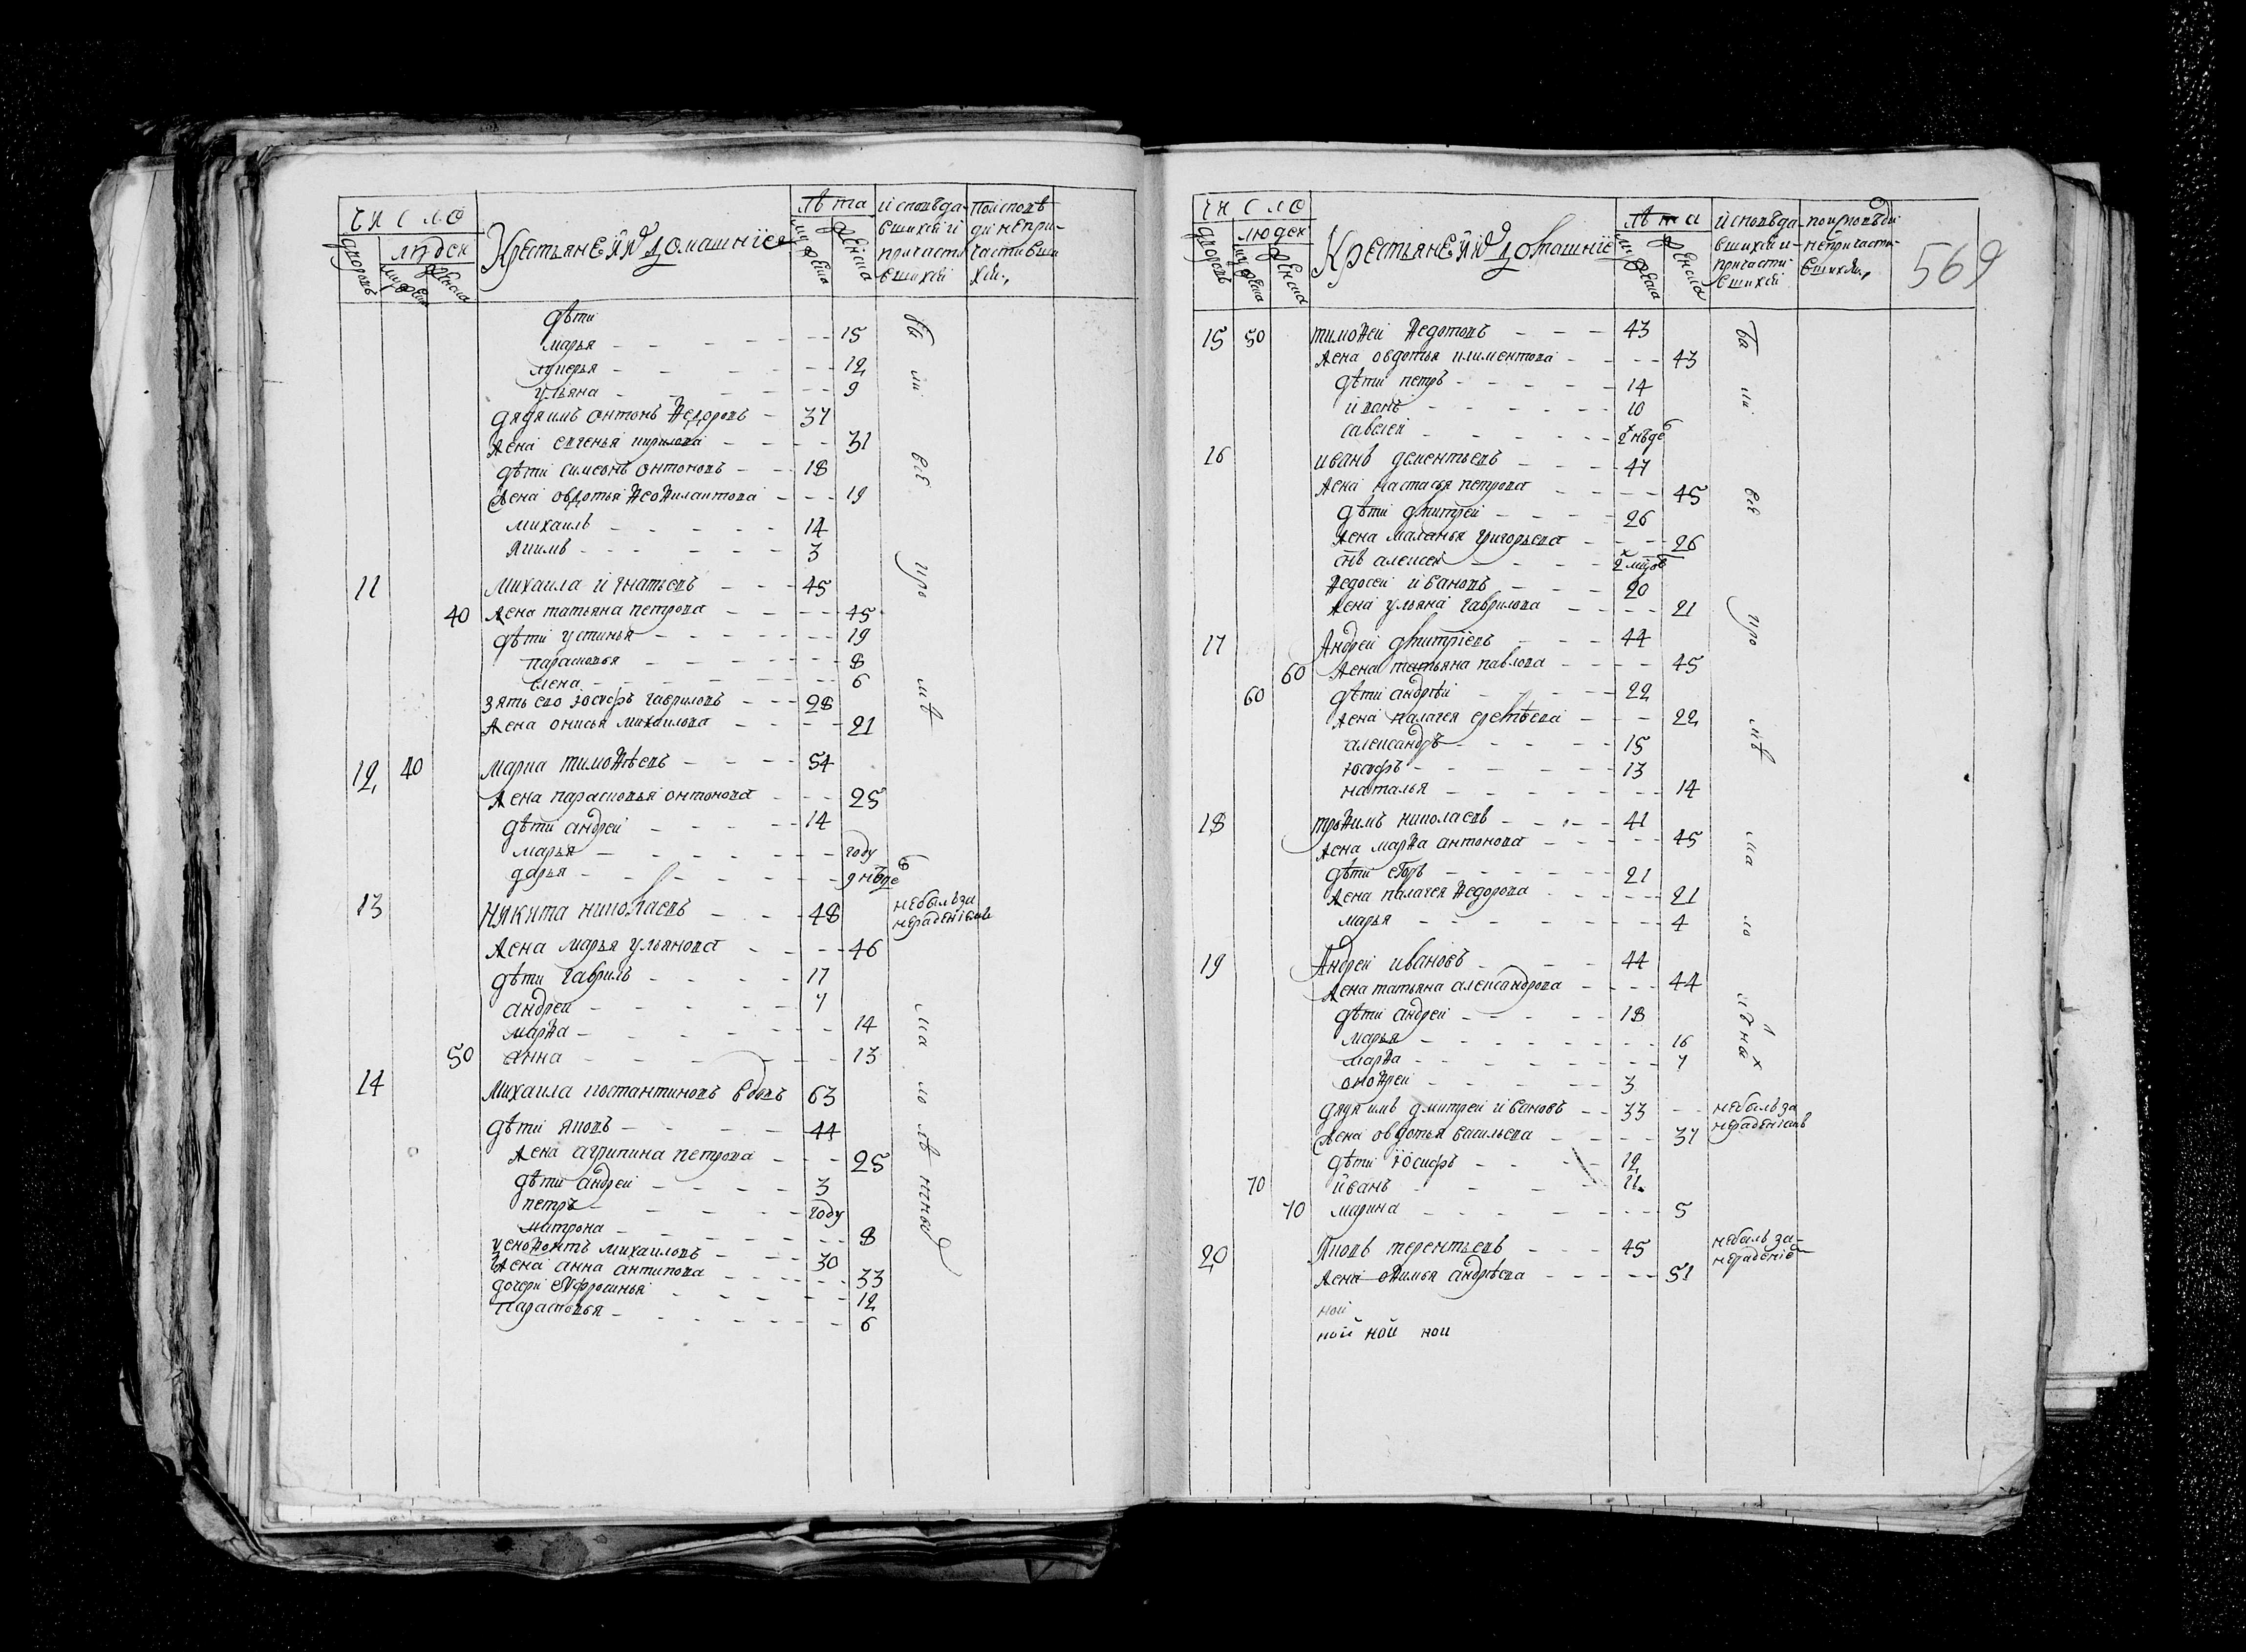 число
людеи
дворовъ
мужеска
женска
Крестьяне и их домашние
лѣта
мужеска
женска
исповѣда-
вшихся и
причасти
вшихся
по исповѣ
ди непри-
частивши
хся.,
дѣти
марья - 15
лукерья - 12
ульяна - 9
дядя имъ онтонъ Ѳедоровъ - 37
жена евгенья кирилова - 31
дѣти симеонъ онтоновъ - 18
жена овдотья Ѳеоѳилактова - 19
михаилъ - 14
якимъ - 3
11 михаила игнатьевъ - 45
40 жена татьяна петрова - 45
дѣти устинья - 19
парасковья - 8
елена - 6
зять ево іосифъ гавриловъ - 28
жена онисья михаилова - 21
12 40 марка тимоѳѣевъ - 54
жена парасковья онтонова - 25
дѣти андреи - 14
марья - году
дарья - 9 нѣде
13 никита николаевъ - 48 небылъ за
нерадениемъ
жена марья ульянова - 46
дѣти гаврилъ - 17
андреи - 7
марѳа - 14
50 анна - 13
14 михаила костантиновъ вдовъ 63
дѣти яковъ - 44
жена агрипина петрова - 25
дѣти андреи - 3
петръ - году
матрона - 8
ксеноѳонтъ михаиловъ - 30
жена анна антипова - 33
дочери еѵфросинья - 12
парасковья - 6
бы ли всѣ про мѣ
ма ло лѣ тных
число
людеи
дворовъ
мужеска
женска
Крестьяне и их домашние
лѣта
мужеска
женска
исповѣда-
вшихся и-
причасти-
вшихся
по исповѣди
непричасти-
вшихся.,
569
15 50 тимоѳеи Ѳедотовъ - 43
жена овдотья климентова - 43
дѣти петръ - 14
иванъ - 10
савелеи - 2 нѣде
16 иванъ дементьевъ - 47
жена настасья петрова - 45
дѣти дмитреи - 26
жена маланья григорьева - 26
сынъ алексеи - 2
Ѳедосеи ивановъ - 20
жена ульяна гаврилова - 21
17 Андреи дмитріевъ - 44
60 жена татьяна павлова - 45
60 дѣти андрѣи - 22
жена палагея - 22
александръ - 15
іосифъ - 13
наталья - 14
18 троѳимъ николаевъ - 41
жена марѳа антонова - 45
дѣти егоръ - 21
жена палагея Ѳедорова - 21
марья - 4
19 Андреи ивановъ - 44
жена татьяна александрова - 44
дѣти андреи - 18
марья - 16
марѳа - 7
оноѳреи - 3
дядя имъ дмитреи ивановъ - 33 небылъ за
нерадениемъ
жена овдотья васильева - 37
дѣти іосифъ - 12
70 иванъ - 11
70 марина - 5
20 Яковъ терентьевъ - 45 небылъ за-
нерадениe
жена оѳимья андрѣева - 51
ной
ной ной ной
бы ли всѣ про мѣ
ма ло